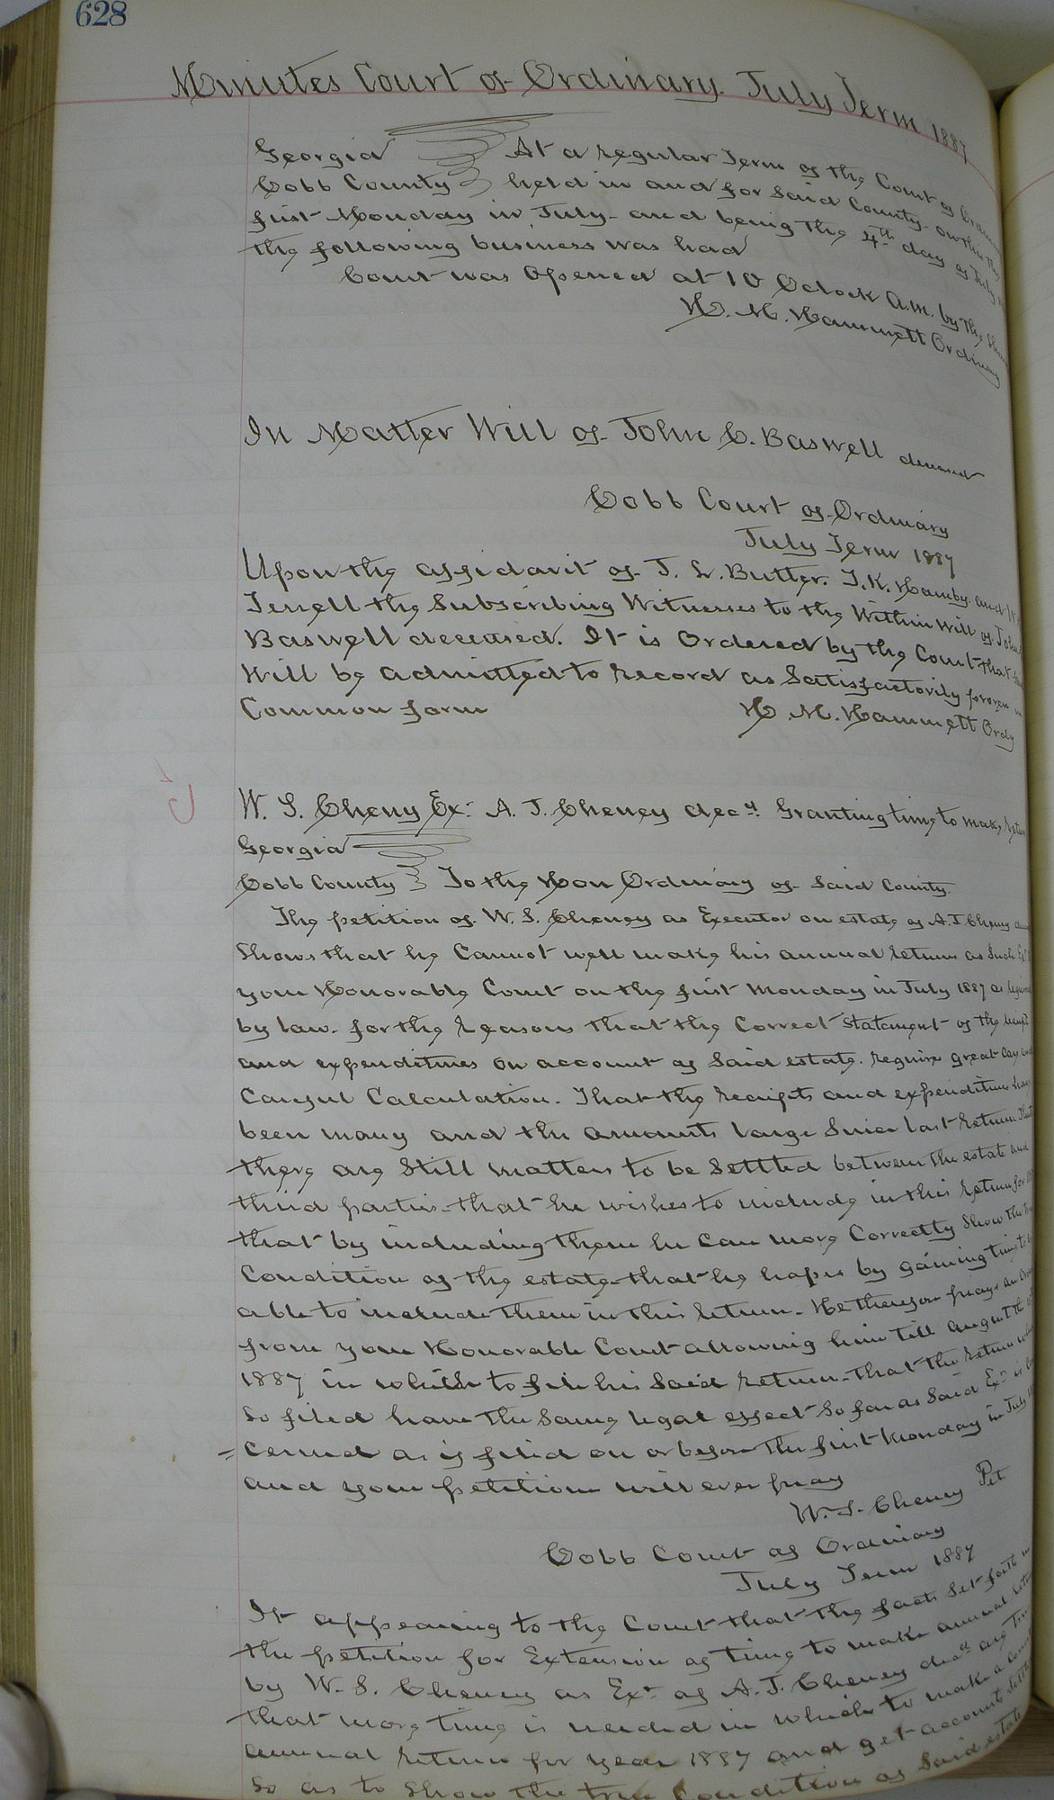 628
Minutes Court of Ordinary. July Term 1887
Georgia At a regular Term of the Court of
Cobb County held in and for said County on the
first Monday in July and being the 4th day of July
the following business was had
Court was Opened at 10 Oclock A.M. by the
H. M. Hammett Ordinary
In Matter Will of John C. Baswell deceased
Cobb Court of Ordinary
July Term 1887
Upon the affidavit of J. L. Butler. T. K. Hamby and
Terrell the Subscribing Witnesses to the Within Will of John
Baswell deceased. It is Ordered by the Court that
Will be admitted to record as Satisfactorily proven in
Common form H. M. Hammett Ordy
W. S. Cheny Ex. A. J. Cheney decd. Granting time to make
Georgia
Cobb County To the Hon Ordinary of Said County.
The petition of W. S. Cheney as Executor on estate of A. J. Cheny
Shows that he Cannot well make his annual returns as Such
your Honorable Court on the first Monday in July 1887 as
by law. for the reasons that the Correct Statement of the
and expenditures on account of Said estate. require great care
Careful Calculation. That the receipts and expenditures have
been many and the amounts large Since last return
there are Still matters to be Settled between the estate and
third parties. that he wishes to include in this return for
that by including them he can more Correctly Show the
Condition of the estate that he hopes by gaining time to
able to include them in this return. He therefore prays an
from your Honorable Court allowing him till August the
1887 in which to file his Said return. that the return
So filed have the Same legal effect So far as Said Exr. is
= cerned as if filed on or before the first Monday in July
and your petition will ever pray
W. S. Cheny Pet
Cobb Court of Ordinary
July Term 1887
It appearing to the Court that the facts Set forth in
the petition for Extension of time to make annual
by W. S. Cheney as Exr of A. J. Cheney decd are
that more time is needed in which to make a
annual return for year 1887 and get accounts
So as to Show the true Condition of Said estate